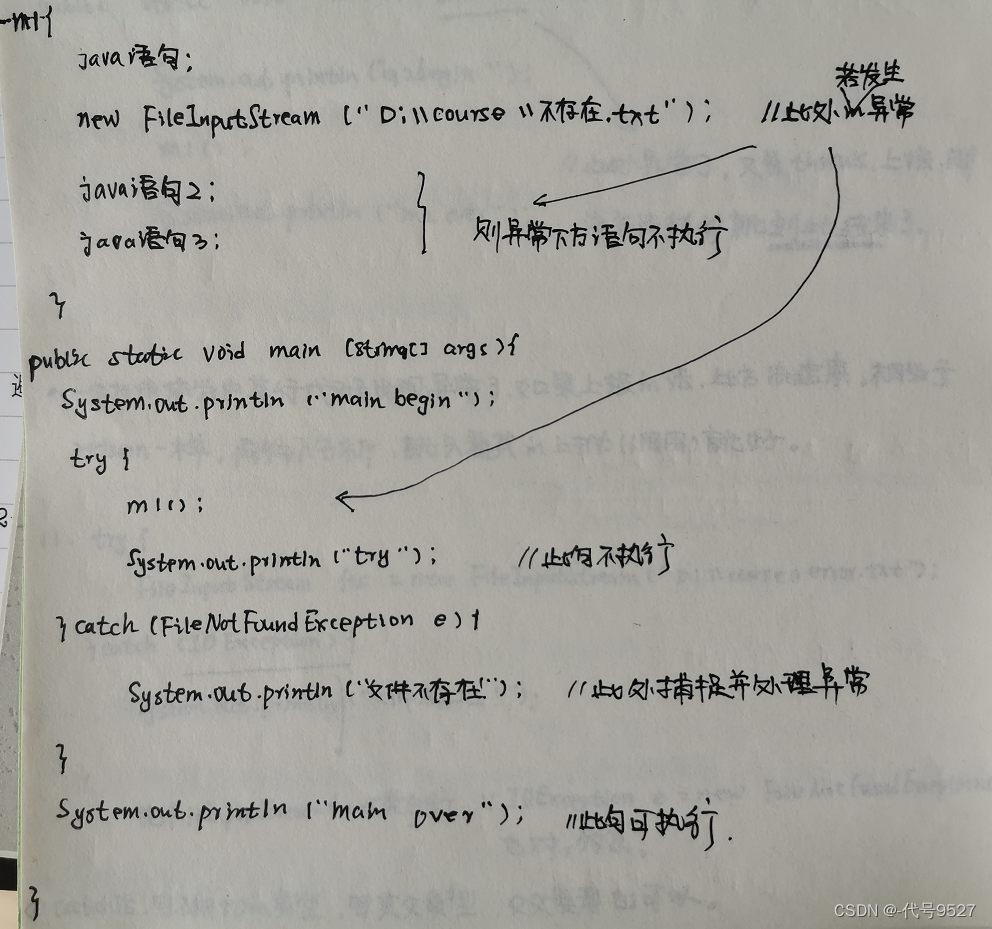 m1{
java语句;
new FileInputStream ("D:\\course\\不存在.txt"); //此处若发生异常
java语句2;
java语句3;
则异常下方语句不执行
}
public static void main (String[] args){
System.out.println ("main begin");
try {
m1();
System.out.println ("try"); //此句不执行
} catch (FileNotFoundException e) {
System.out.println ("文件不存在!"); //此处捕捉并处理异常
}
System.out.println ("main over"); //此句可执行.
}
CSDN @-代号9527